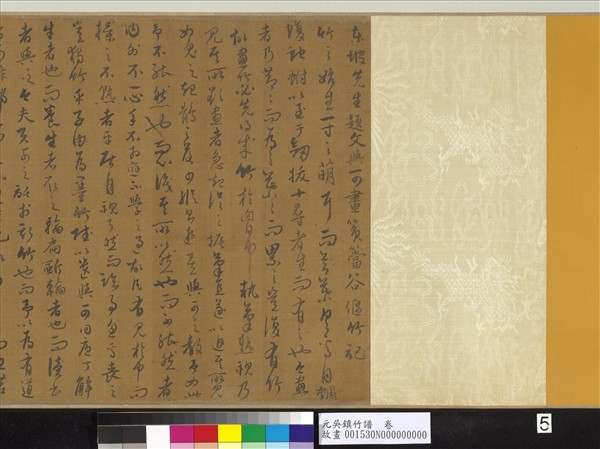 東坡先生題文與可畫篔簹谷偃竹記
竹之始生一寸之萌耳而節葉具焉自蜩
腹蛇蚹以至于劍拔十尋者生而有之也今畫
者乃節節而為之葉葉而累之豈復有竹
故畫竹必先得成竹於胸中執筆熟視乃
見其所欲畫者急起從之振筆直遂以追其所見
如兔之起鶻之落少縱則逝矣與可之教予如此
予不能然也而識其所以然也而不能然者
内外不一心手不相應不學之過故凡有見於中而
操之不熟者平居自視了然而臨事忽焉喪之
豈獨竹乎子由為墨竹賦以遺與可曰庖丁解
牛者也而養生者取之輪扁斲輪者也而讀書
者與之今夫夫子之託於斯竹也而予以為有道
元吳鎮竹譜 卷
故畫 001530N000000000
5